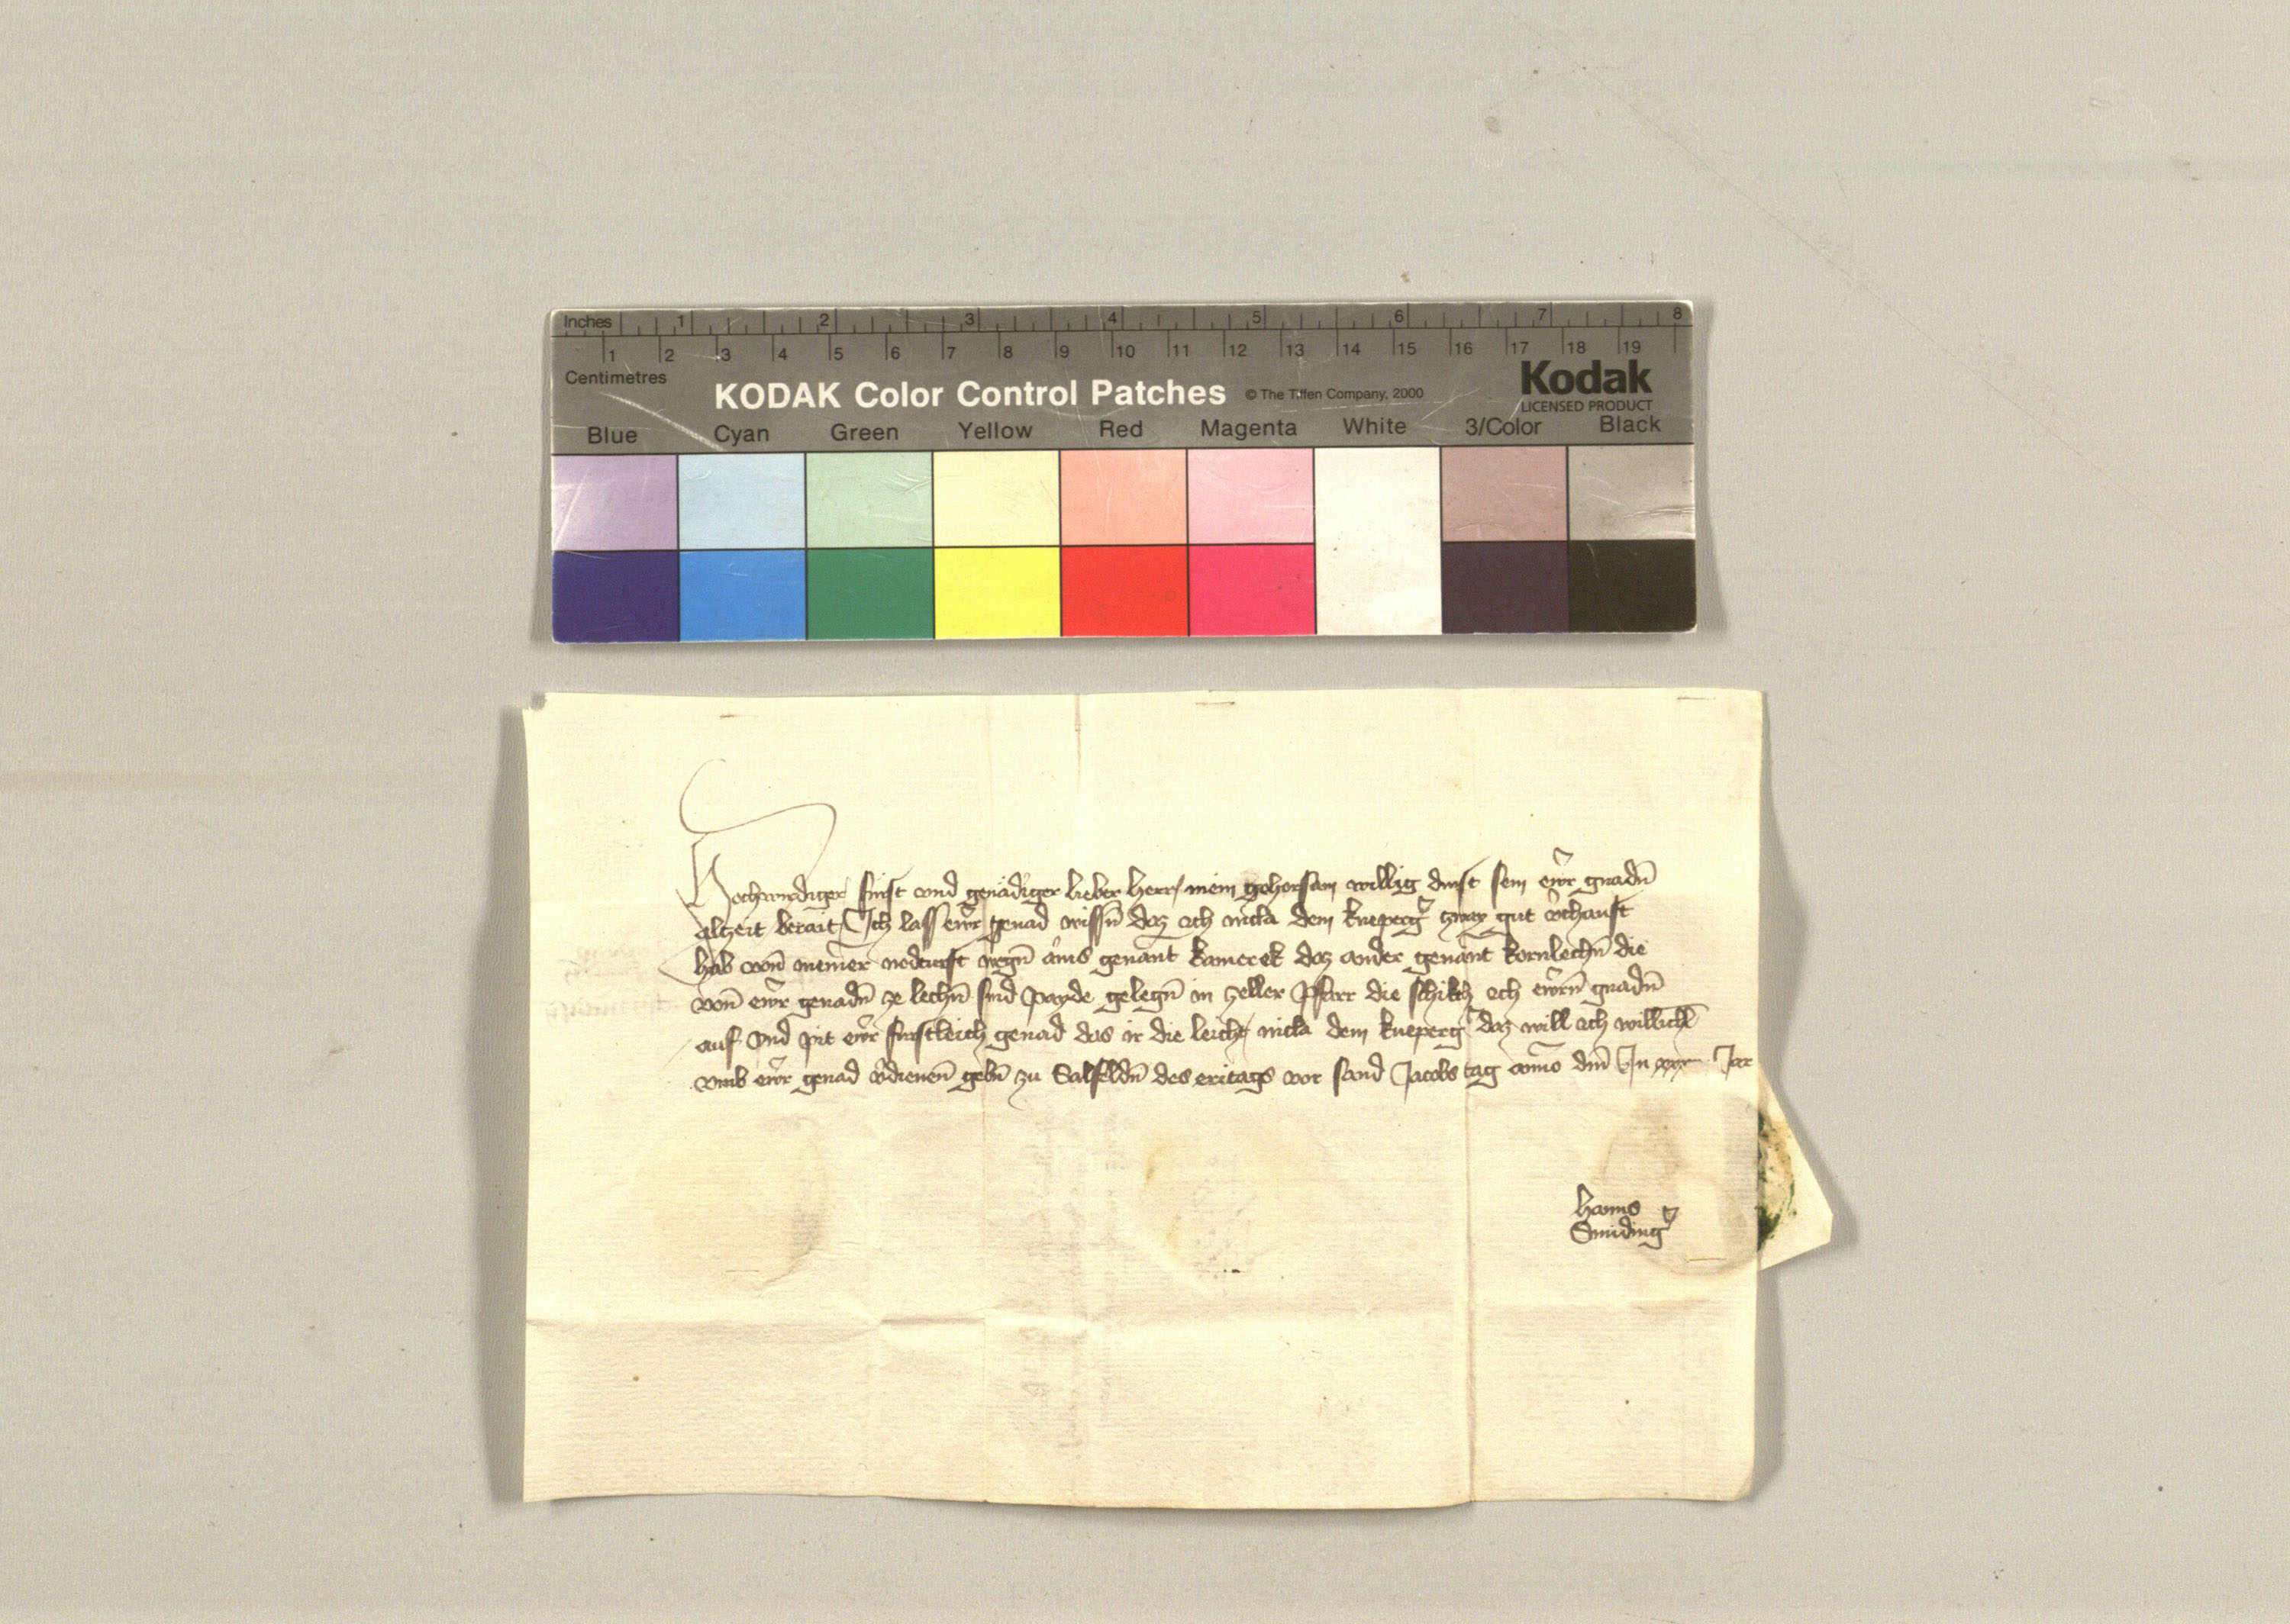 Inches 1 2 3 4 5 6 7 8
1 2 3 4 5 6 7 8 9 10 11 12 13 14 15 16 17 18 19
Centimetres
KODAK Color Control Patches © The Tiffen Company, 2000 Kodak
LICENSED PRODUCT
Blue Cyan Green Yellow Red Magenta White 3/Color Black
Hochwirdiger fürst vnd genädiger lieber herr mein gehorsam willig dinst sein ewr̄ gnadn̄
alzeit berait Ich lass ewr̄ genad wissn̄ daz ich nicla dem kneperḡ zway gut v̄chauft
hab von̄ meiner nodturft wegn̄ ains genant kamerek daz ander genant kornlechn̄ die
von̄ ewr̄ genadn̄ ze lechn̄ sind payde gelegn̄ in zeller pfarr die schikch ich ewrn̄ gnadn̄
auf vnd pit ewr̄ furstleich genad das ir die leicht nicla dem kneperḡ daz will ich willichl̄
vmb ewr̄ genad v̄dienen̄ gebn̄ zu Salfeldn̄ des eritags vor sand Jacobs tag an̄o dn̄i In Jar
hanns
Smidinḡ